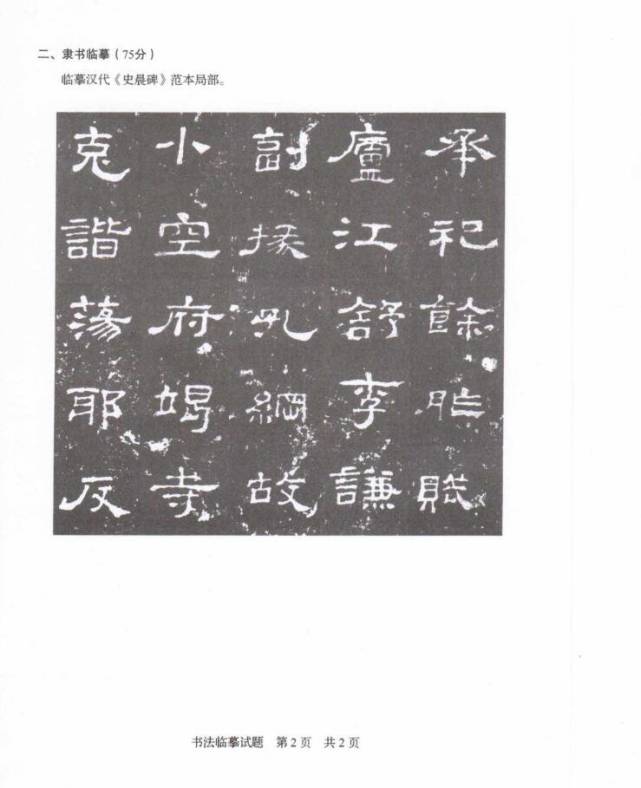 二、隶书临摹（75分）
临摹汉代《史晨碑》范本局部。
承祀餘胙賦
廬江舒李謙
副掾孔綱故
小空府竭寺
克諧蕩耶反
书法临摹试题 第2页 共2页